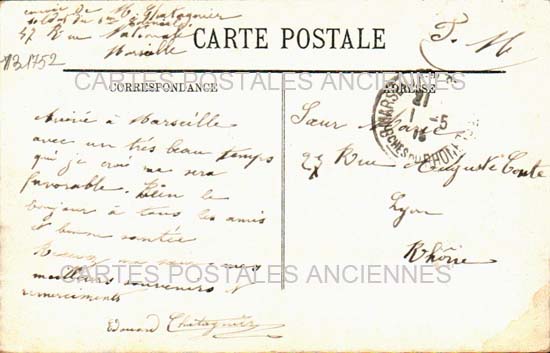 envoi de M Chatagnier
soldat du
27 Rue Nationale
Marseille
131752
CARTE POSTALE
F. M
CARTES POSTALES ANCIENNES
CORRESPONDANCE
ADRESSE
Arrivé à Marseille
avec un très beau temps
qui je croi me sera
favorable. bien le
bonjour à tous les amis
et bonne santée
meilleurs souvenirs
remerciments
Edouard Chatagnier
Sœur Marie
27 Rue Auguste Comte
Lyon
Rhône
MARSEILLE
21
1 - 5
BCHES DU RHONE
CARTES POSTALES ANCIENNES